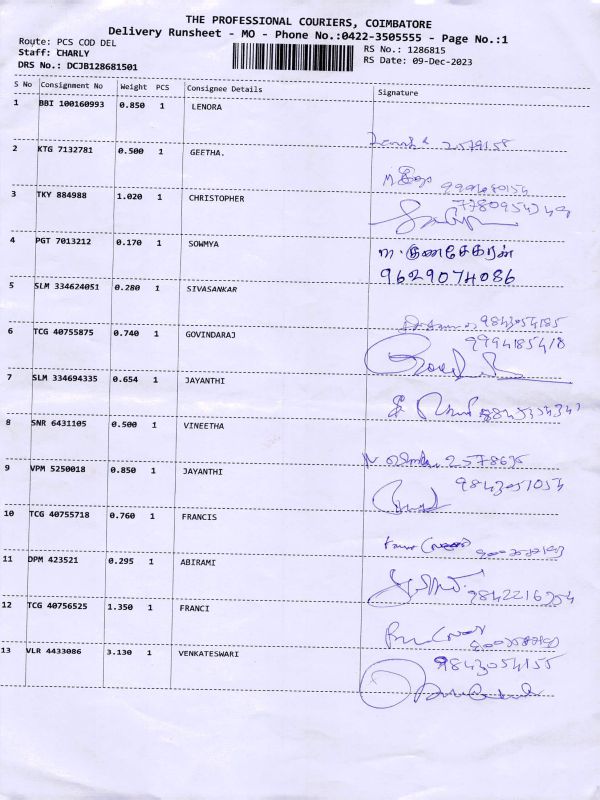 THE PROFESSIONAL COURIERS, COIMBATORE
Delivery Runsheet - MO - Phone No.:0422-3505555 - Page No.:1
Route: PCS COD DEL
RS No.: 1286815
Staff: CHARLY
RS Date: 09-Dec-2023
DRS No.: DCJB128681501
S No Consignment No Weight PCS Consignee Details Signature
1 BBI 100160993 0.850 1 LENORA
2579158
2 KTG 7132781 0.500 1 GEETHA.
3 TKY 884988 1.020 1 CHRISTOPHER
4 PGT 7013212 0.170 1 SOWMYA
m. குணசேகரன்
9629074086
5 SLM 334624051 0.280 1 SIVASANKAR
9843054185
6 TCG 40755875 0.740 1 GOVINDARAJ
9994185418
7 SLM 334694335 0.654 1 JAYANTHI
8 SNR 6431105 0.500 1 VINEETHA
9 VPM 5250018 0.850 1 JAYANTHI
9843051054
10 TCG 40755718 0.760 1 FRANCIS
11 DPM 423521 0.295 1 ABIRAMI
12 TCG 40756525 1.350 1 FRANCI
13 VLR 4433086 3.130 1 VENKATESWARI
9843054155